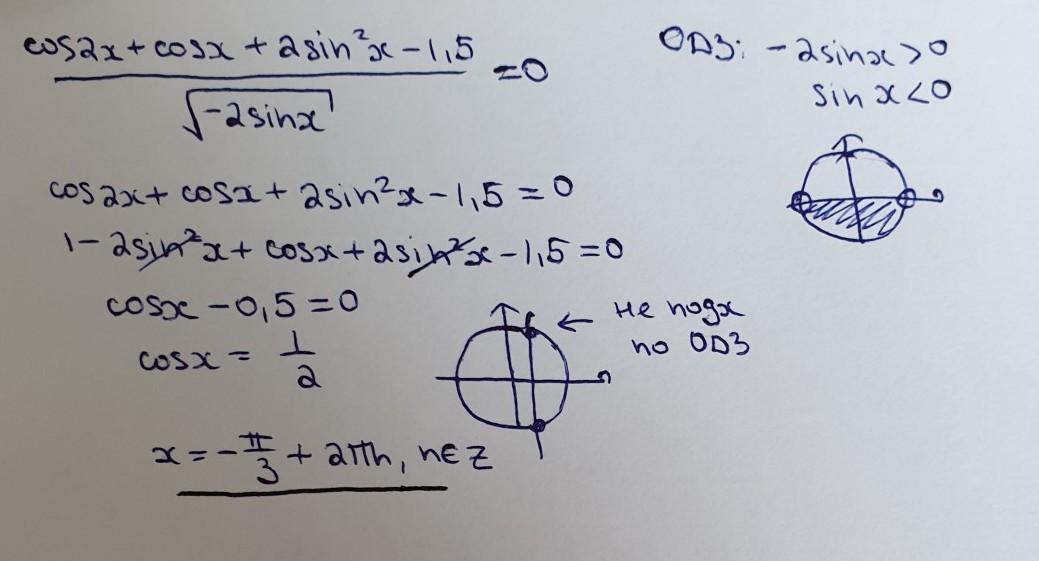 cos2x + cosx + 2sin²x - 1,5 = 0
√-2sinx
ОДЗ: -2sinx > 0
sin x < 0
cos2x + cosx + 2sin²x - 1,5 = 0
1 - 2sin²x + cosx + 2sin²x - 1,5 = 0
cosx - 0,5 = 0
cosx = 1/2
← не подх
по ОДЗ
x = -π/3 + 2πn, n∈Z